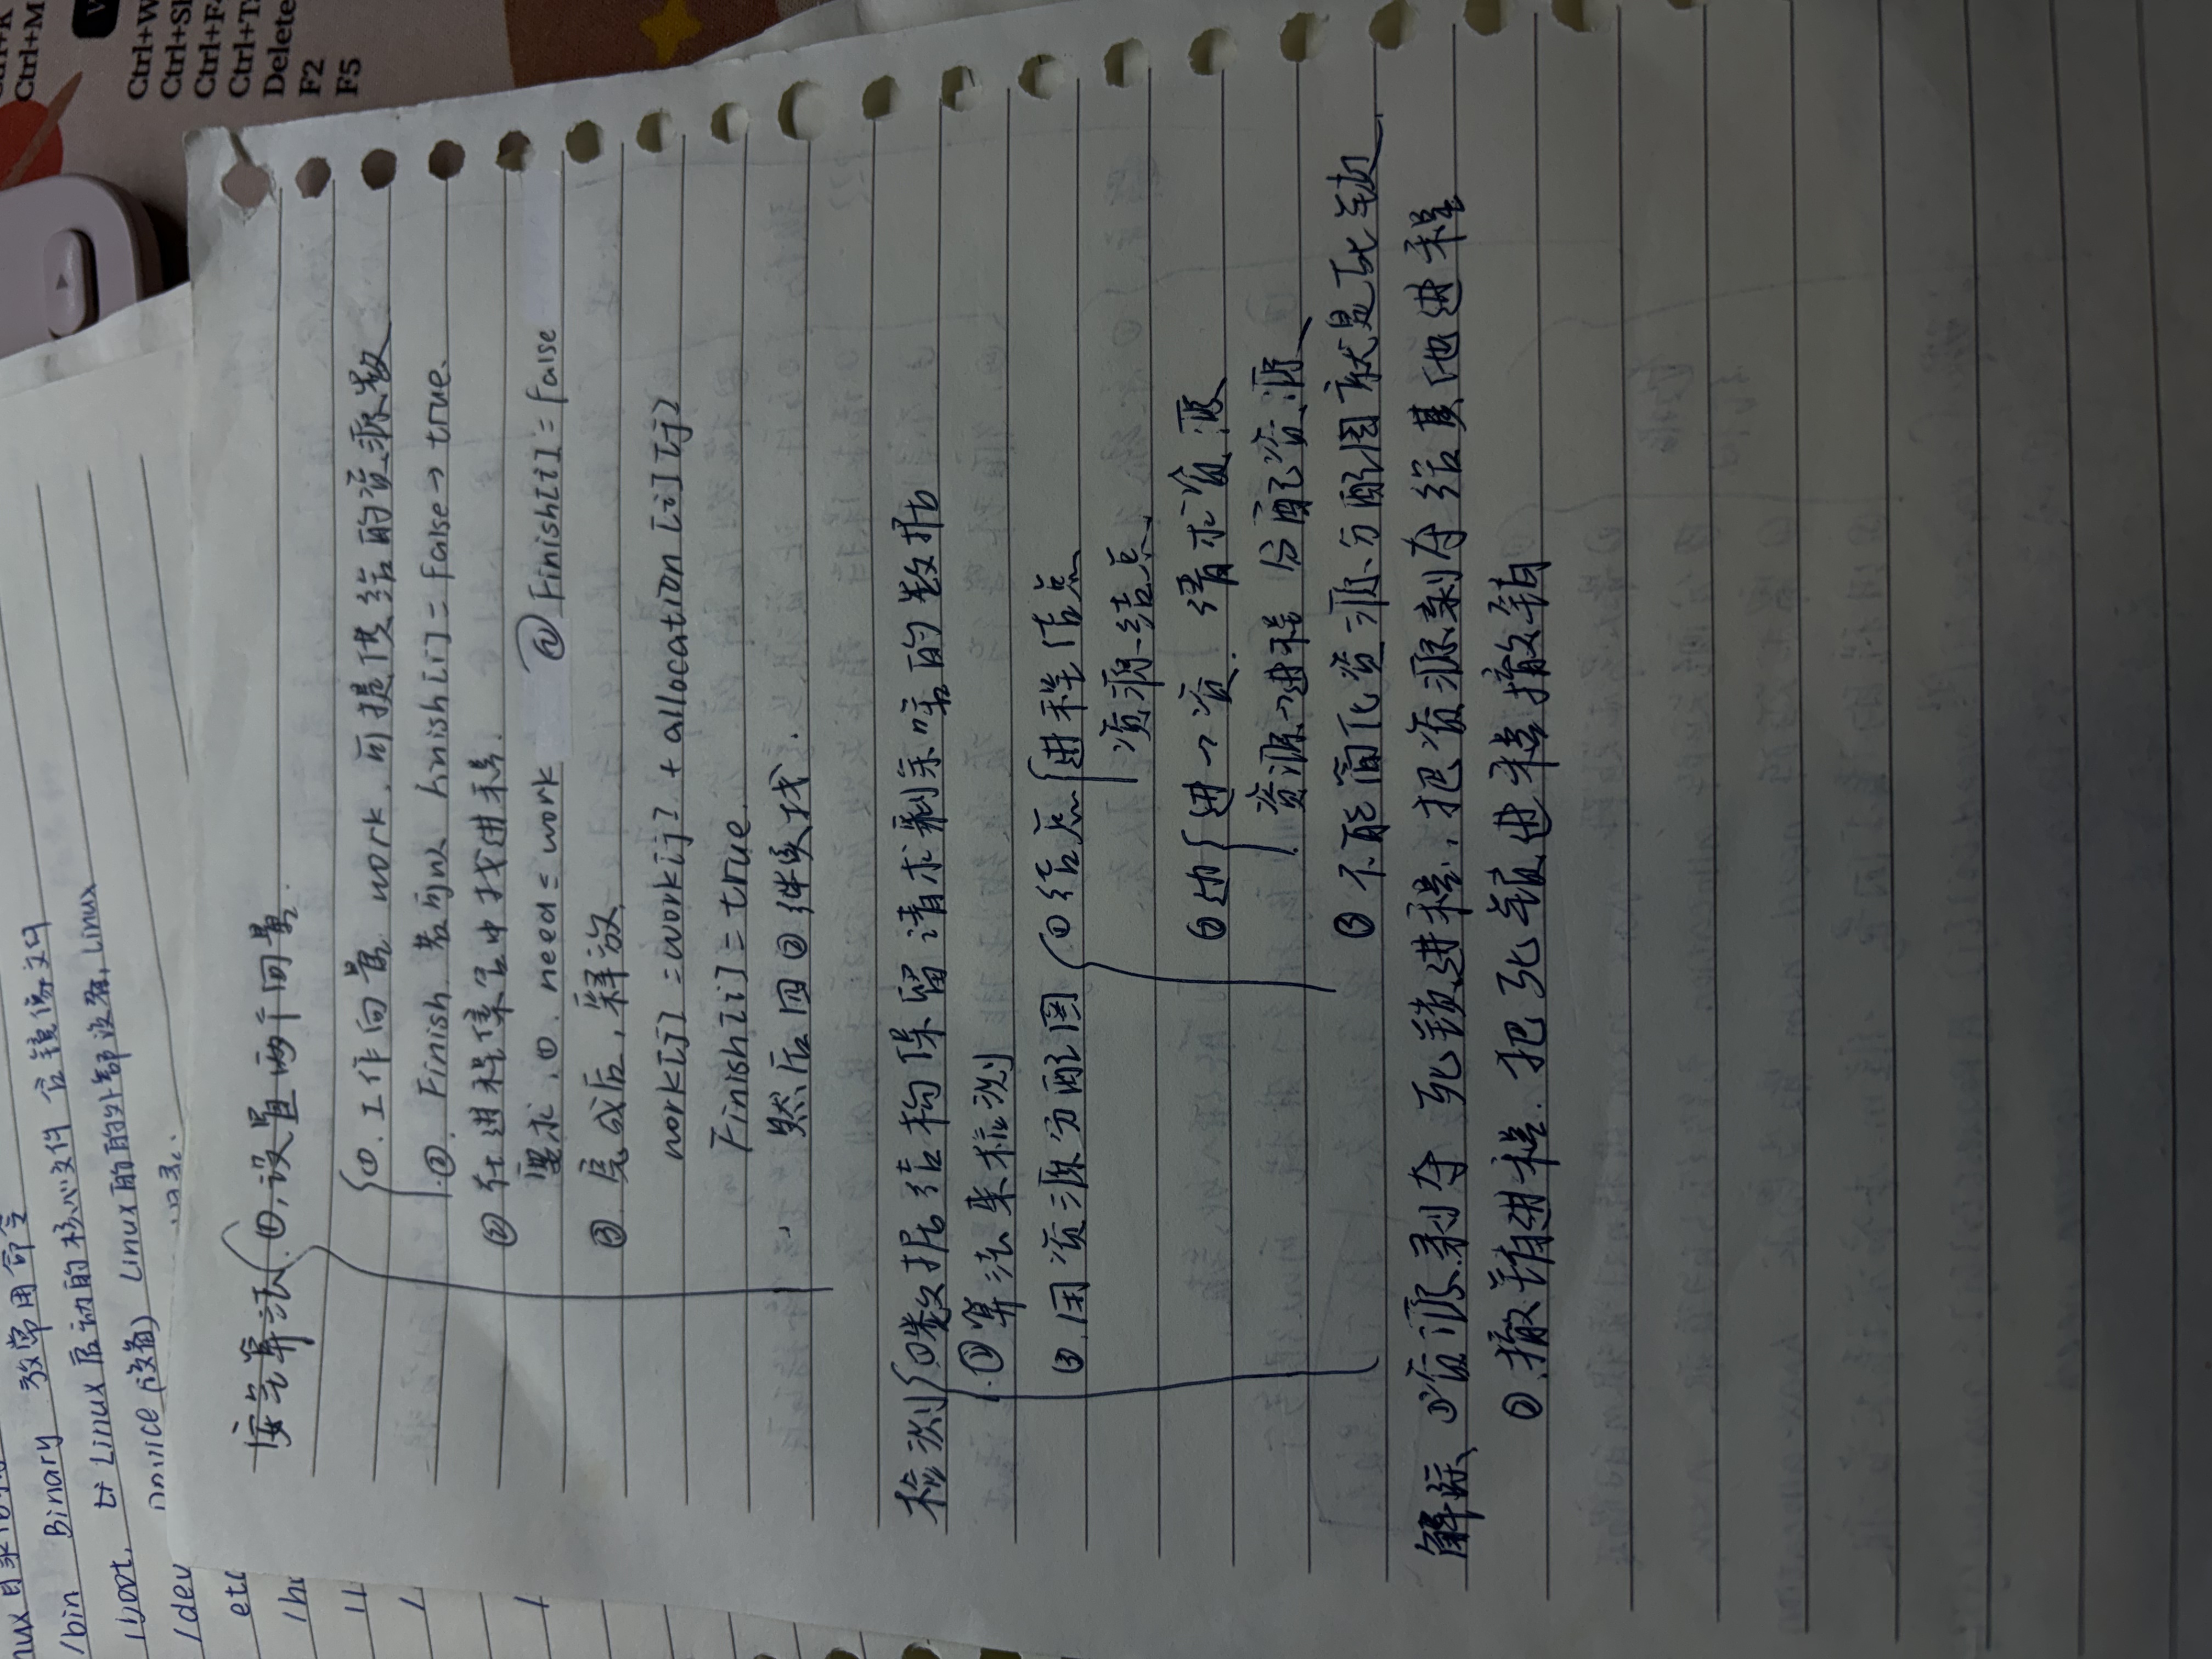 /bin Binary 放常用命令
/boot. 放 Linux 启动的核心文件 含镜像文件
/dev Device (设备) Linux的的外部设备, Linux
目录.
etc
Ctrl+K
Ctrl+M
Ctrl+W
Delete
F2
F5
安全算法 ①, 设置两个向量.
①. 工作向量 work. 可提供给的资源数
②. Finish 若可以 finish[i] = false → true.
② 在进程集合中找进程.
要求. ①. need ≤ work ② Finish[i] = false
③ 完成后, 释放
work[j] = work[j] + allocation [i] [j]
Finish[i] = true.
然后回②继续找.
检测 ①数据结构保留请求剩余啥的数据
②算法来检测
③.用资源分配图 ①结点 进程结点
资源结点
②边 进→资. 请求资源
资源→进程 分配资源
③ 不能简化资源分配图就是死锁.
解除 ①资源剥夺 死锁进程, 把资源剥夺给其他进程
②.撤销进程. 把死锁进程撤销